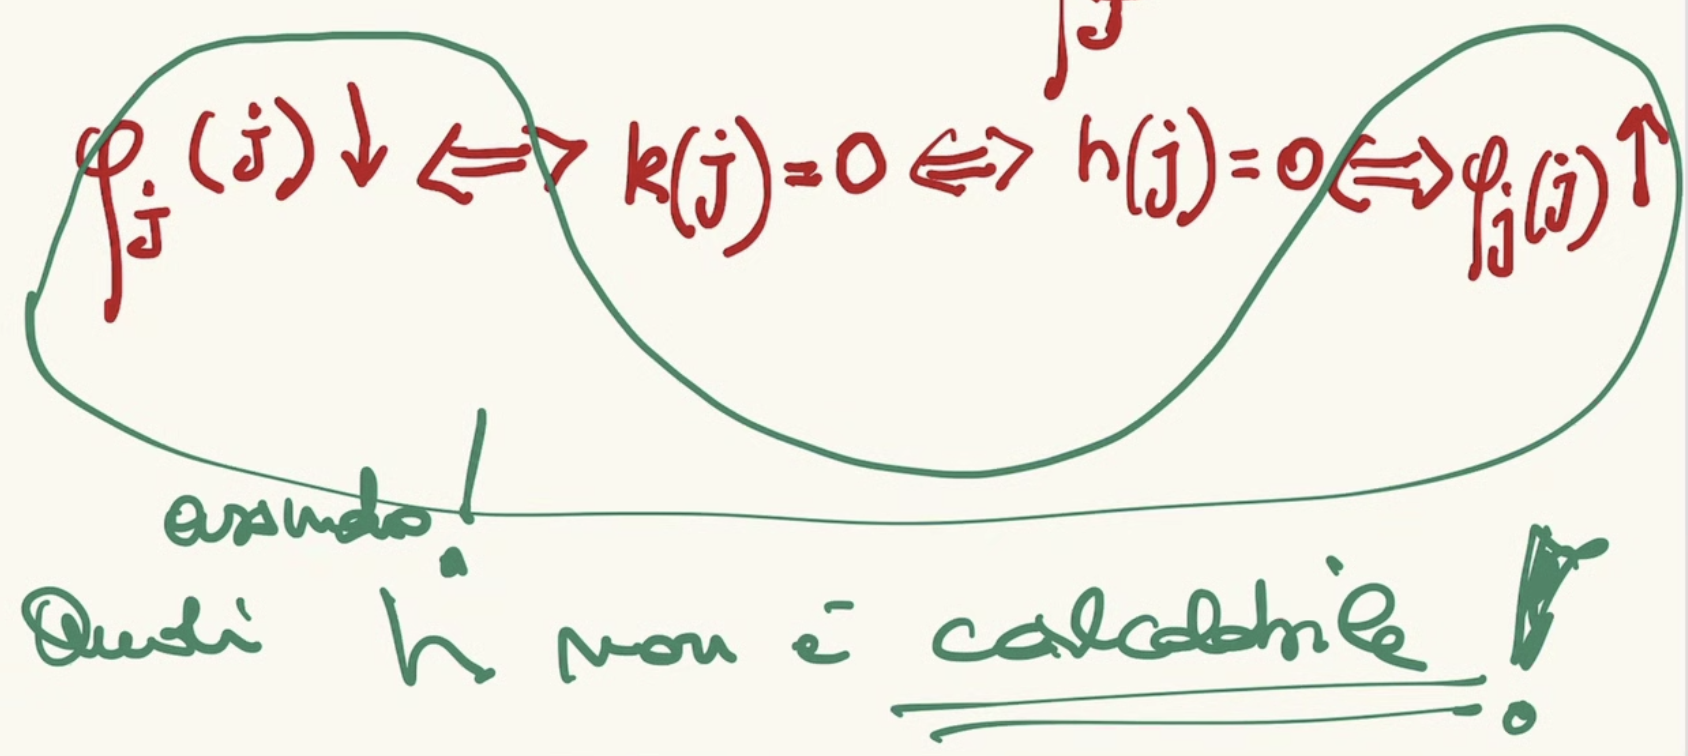 φ_j
φ_j(j)↓ ⟺ k(j)=0 ⟺ h(j)=0 ⟺ φ_j(j)↑
assurdo!
Quindi h non è calcolabile!